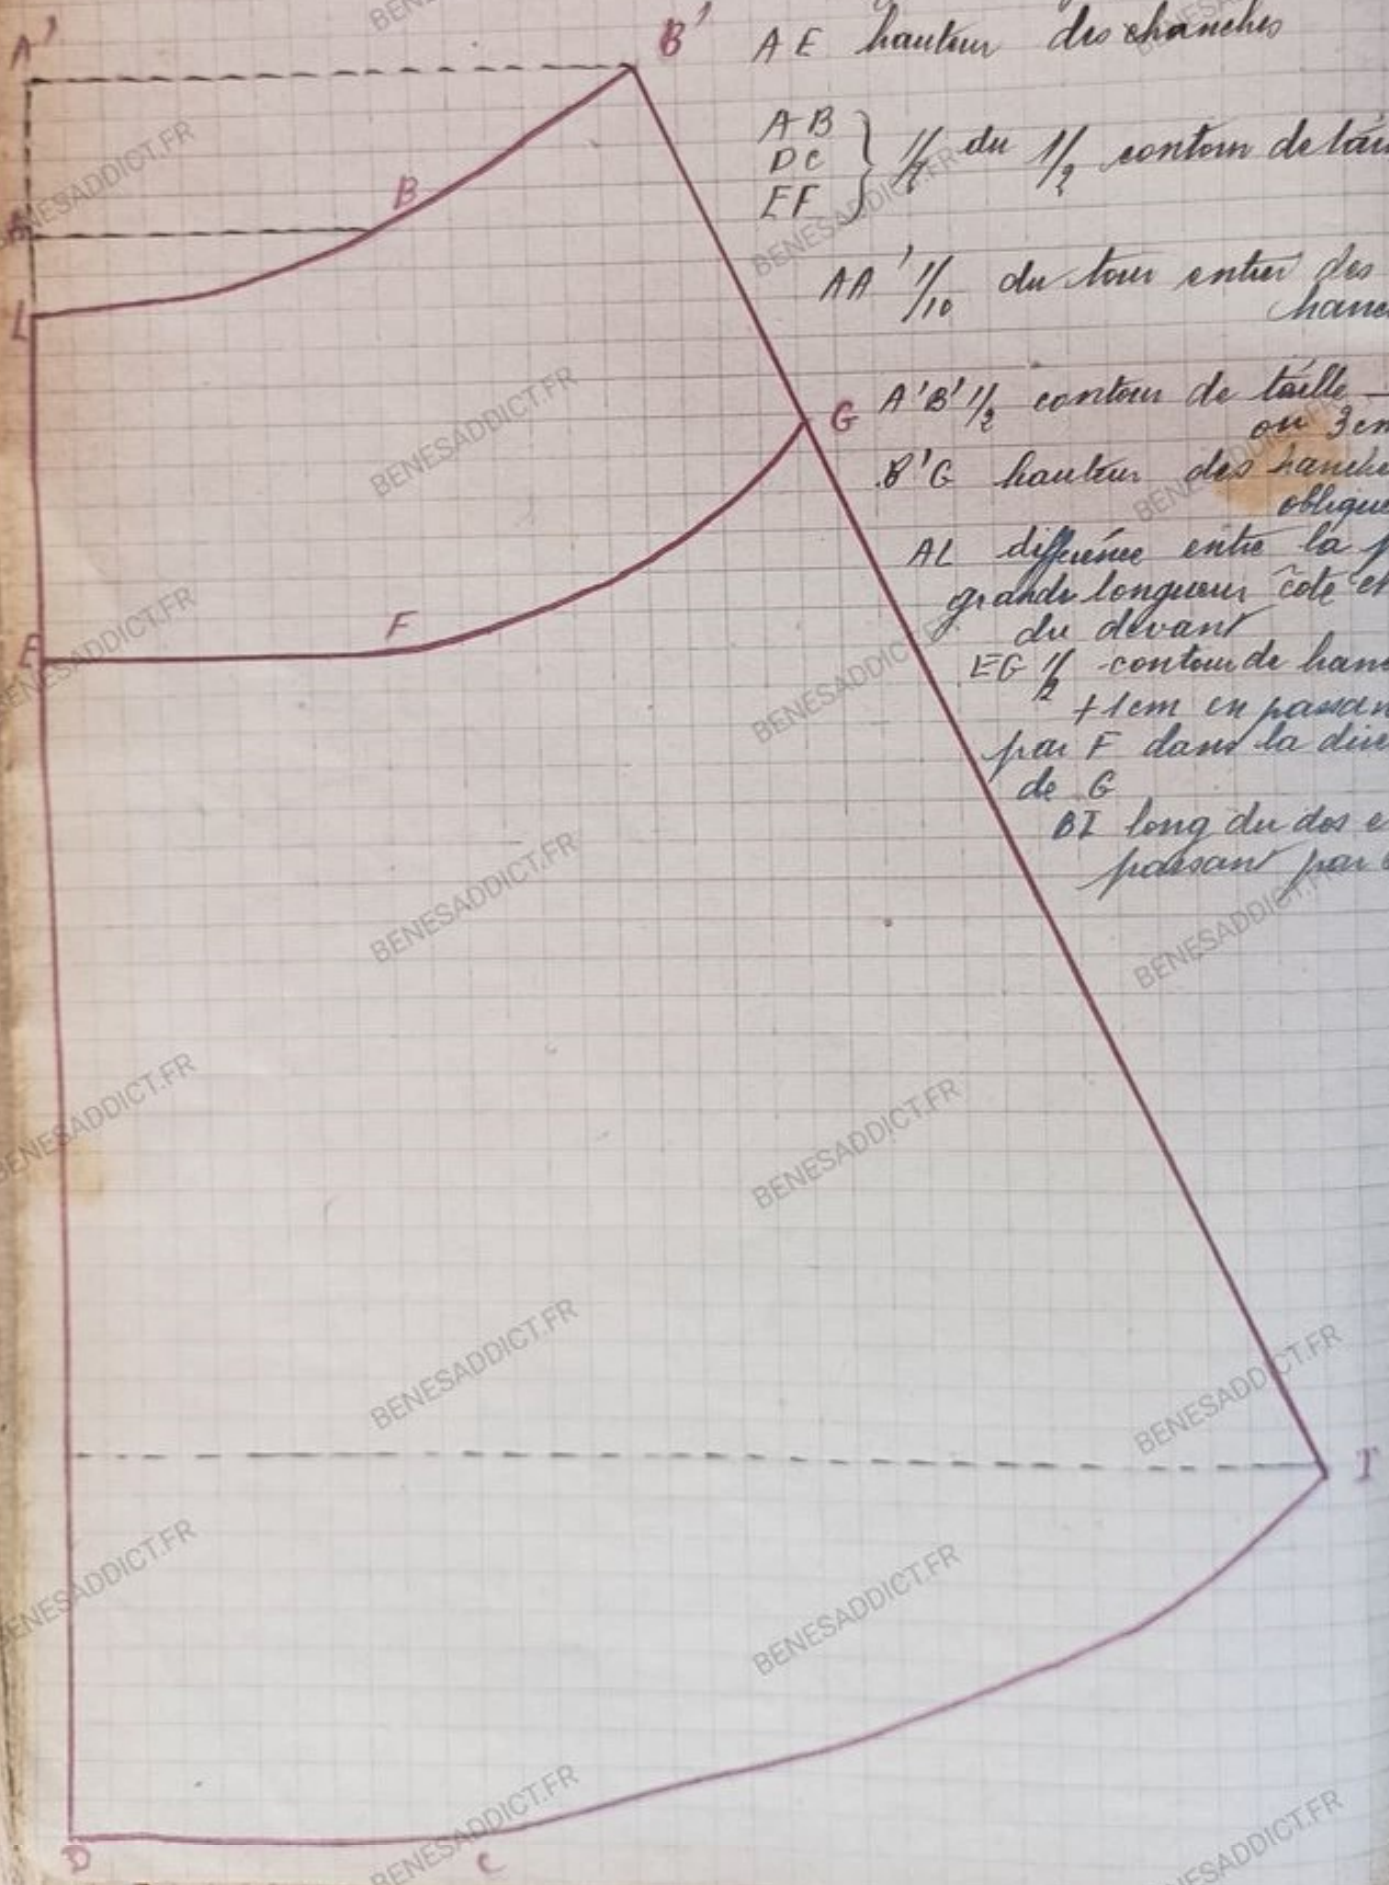 A'
B'
A E hauteur des chanches
AB
DC
EF
1/4 du 1/2 contour de tai
B
A
AA' 1/10 du tour entier des
hanc
L
G
A'B' 1/2 contour de taille —
ou 3 cm
B'G hauteur des hanche
oblique
AL différence entre la p
grande longueur côté et
du devant
F
E
EG 1/2 contour de hanc
+ 1 cm en passan
par F dans la direc
de G
BI long du dos e
passant par
I
D
C
BENESADDICT.FR